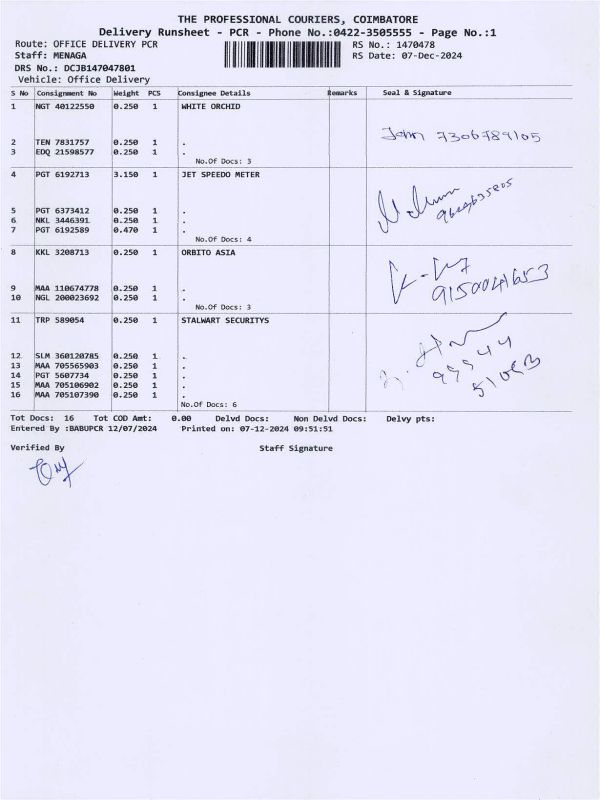 THE PROFESSIONAL COURIERS, COIMBATORE
Delivery Runsheet - PCR - Phone No.:0422-3505555 - Page No.:1
Route: OFFICE DELIVERY PCR RS No.: 1470478
Staff: MENAGA RS Date: 07-Dec-2024
DRS No.: DCJB147047801
Vehicle: Office Delivery
S No Consignment No Weight PCS Consignee Details Remarks Seal & Signature
1 NGT 40122550 0.250 1 WHITE ORCHID
John 7306789105
2 TEN 7831757 0.250 1 .
3 EDQ 21598577 0.250 1 .
No.Of Docs: 3
4 PGT 6192713 3.150 1 JET SPEEDO METER
5 PGT 6373412 0.250 1 .
6 NKL 3446391 0.250 1 .
7 PGT 6192589 0.470 1 .
No.Of Docs: 4
8 KKL 3208713 0.250 1 ORBITO ASIA
9150041653
9 MAA 110674778 0.250 1 .
10 NGL 200023692 0.250 1 .
No.Of Docs: 3
11 TRP 589054 0.250 1 STALWART SECURITYS
12 SLM 360120785 0.250 1 .
13 MAA 705565903 0.250 1 .
14 PGT 5607734 0.250 1 .
15 MAA 705106902 0.250 1 .
16 MAA 705107390 0.250 1 .
No.Of Docs: 6
Tot Docs: 16 Tot COD Amt: 0.00 Delvd Docs: Non Delvd Docs: Delvy pts:
Entered By :BABUPCR 12/07/2024 Printed on: 07-12-2024 09:51:51
Verified By Staff Signature